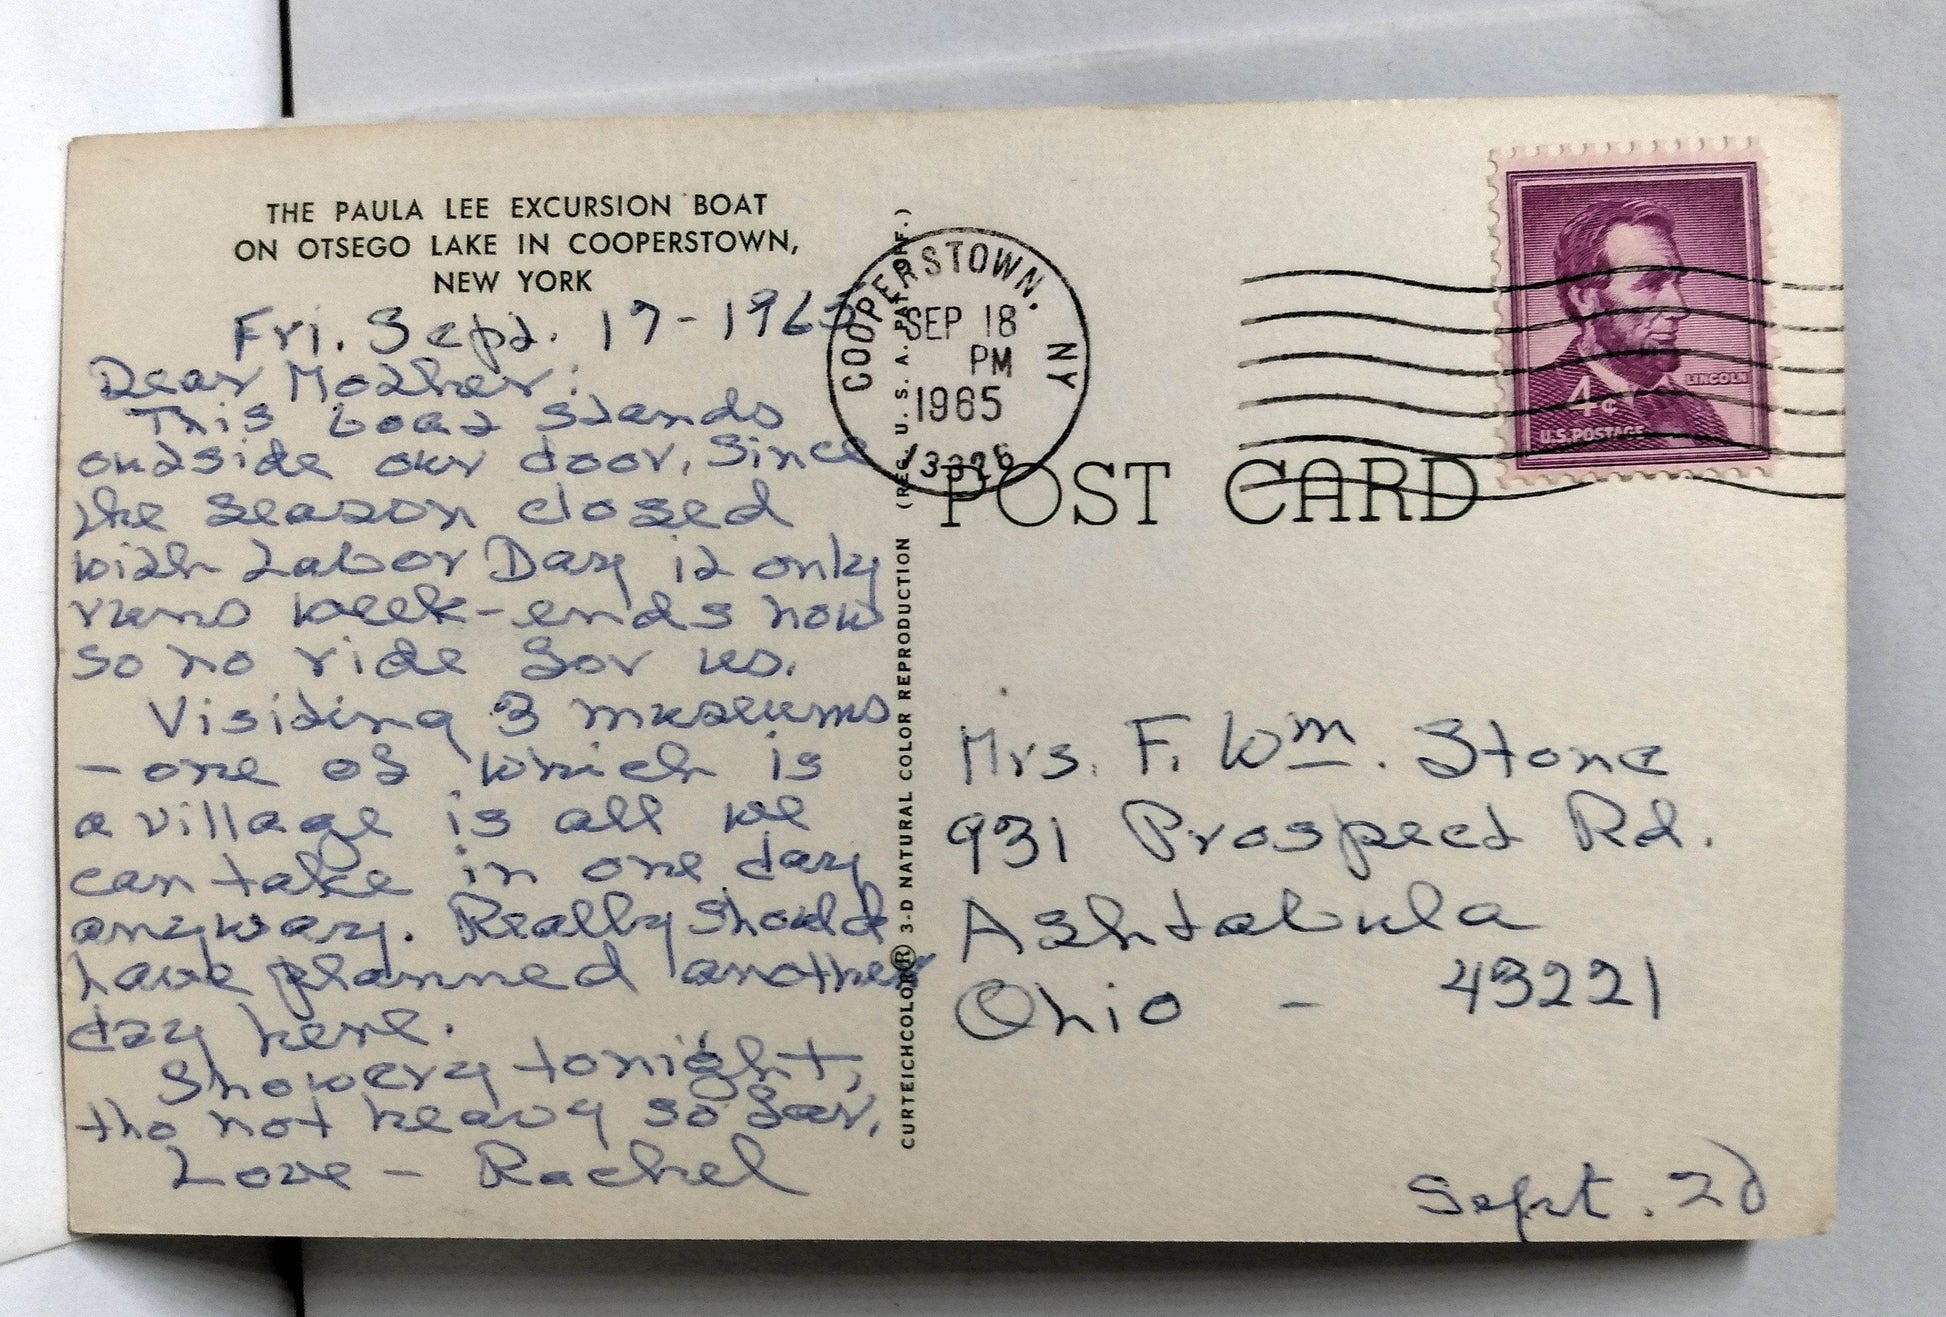 THE PAULA LEE EXCURSION BOAT
ON OTSEGO LAKE IN COOPERSTOWN,
NEW YORK
Fri. Sept. 17-1965
Dear Mother:
This boat stands
outside our door. Since
the season closed
with Labor Day it only
runs week-ends now
so no ride for us.
Visiting 3 museums
- one of which is
a village is all we
can take in one day
anyway. Really should
have planned another
day here.
Showery tonight,
tho not heavy so far.
Love - Rachel
CURTEICHCOLOR® 3-D NATURAL COLOR REPRODUCTION (REG. U.S.A. PAT. OFF.)
COOPERSTOWN, NY
SEP 18
PM
1965
13326
POST CARD
4¢
LINCOLN
U.S. POSTAGE
Mrs. F. Wm. Stone
931 Prospect Rd.
Ashtabula
Ohio - 43221
Sept. 20